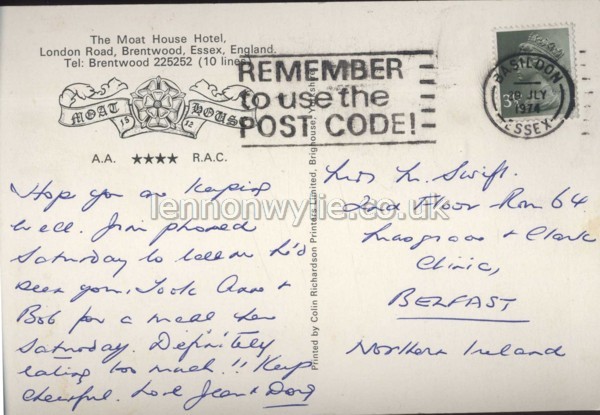 The Moat House Hotel,
London Road, Brentwood, Essex, England.
Tel: Brentwood 225252 (10 lines)
MOAT HOUSE
15 12
A.A. ★★★★ R.A.C.
REMEMBER
to use the
POST CODE!
BASILDON
JLY
1974
ESSEX
3
Printed by Colin Richardson Printers Limited, Brighouse, Yorkshire
Hope you are keeping
well. Jim phoned
Saturday to tell me he'd
seen you. Took Anne &
Bob for a meal here
Saturday. Definitely
eating too much!! Keep
cheerful. Love Jean & Doug
Mrs M. Swift.
2nd Floor Rm 64
Musgrave & Clark
Clinic,
BELFAST
Northern Ireland
lennonwylie.co.uk